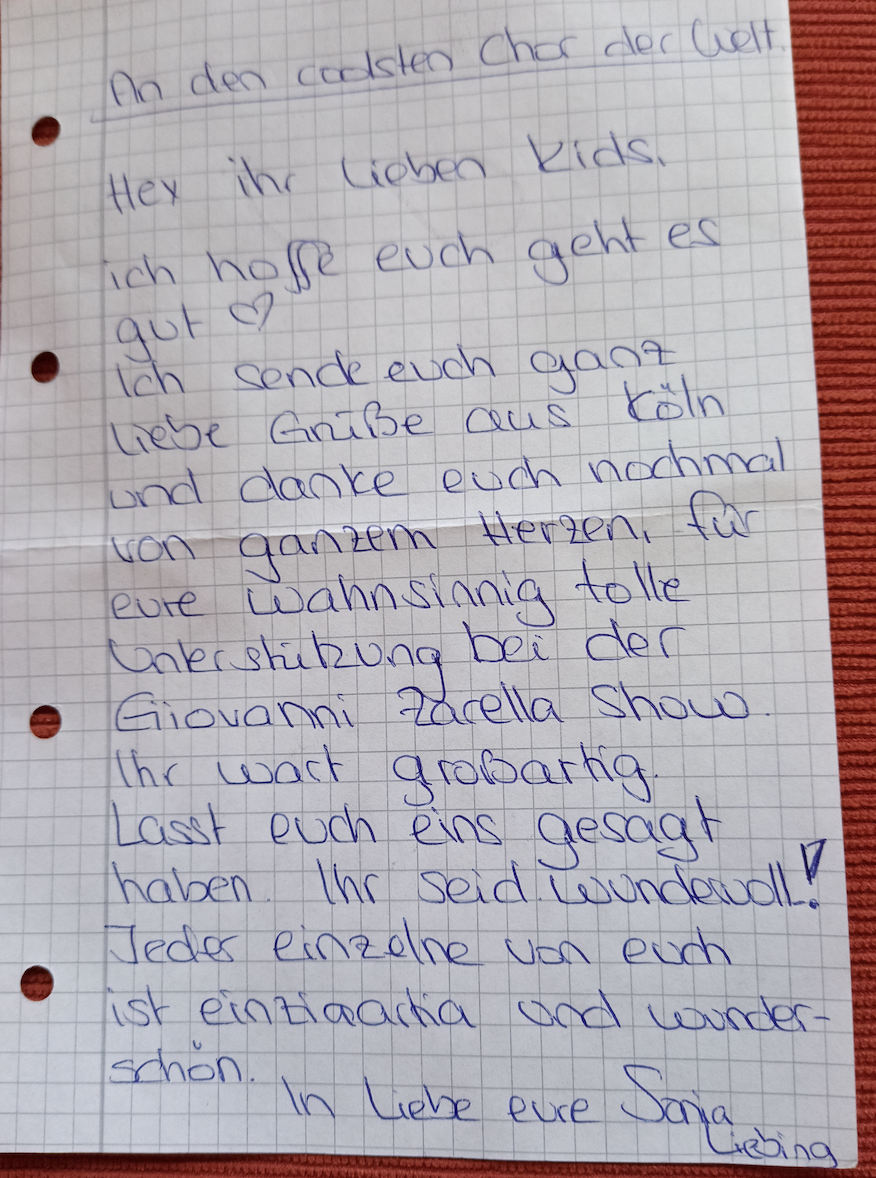 An den coolsten Chor der Welt.
Hey ihr lieben Kids,
ich hoffe euch geht es
gut ♡
Ich sende euch ganz
liebe Grüße aus Köln
und danke euch nochmal
von ganzem Herzen, für
eure wahnsinnig tolle
Unterstützung bei der
Giovanni Zarella Show.
Ihr wart großartig.
Lasst euch eins gesagt
haben. Ihr seid wundevoll!
Jeder einzelne von euch
ist einzigartig und wunder-
schön.
In Liebe eure Sonja
Liebing